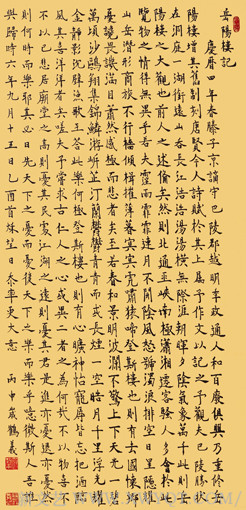 岳陽樓記
慶曆四年春滕子京謫守巴陵郡越明年政通人和百廢俱興乃重修岳
陽樓增其舊制刻唐賢今人詩賦於其上屬予作文以記之予觀夫巴陵勝狀
在洞庭一湖銜遠山吞長江浩浩湯湯橫無際涯朝暉夕陰氣象萬千此則岳
陽樓之大觀也前人之述備矣然則北通巫峽南極瀟湘遷客騷人多會於此
覽物之情得無異乎若夫霪雨霏霏連月不開陰風怒號濁浪排空日星隱曜
山岳潛形商旅不行檣傾楫摧薄暮冥冥虎嘯猿啼登斯樓也則有去國懷鄉
憂讒畏譏滿目蕭然感極而悲者矣至若春和景明波瀾不驚上下天光一碧
萬頃沙鷗翔集錦鱗游泳岸芷汀蘭鬱鬱青青而或長煙一空皓月千里浮光躍
金靜影沉璧漁歌互答此樂何極登斯樓也則有心曠神怡寵辱皆忘把酒臨
風其喜洋洋者矣嗟夫予嘗求古仁人之心或異二者之為何哉不以物喜
不以己悲居廟堂之高則憂其民處江湖之遠則憂其君是進亦憂退亦憂然
則何時而樂耶其必曰先天下之憂而憂後天下之樂而樂乎噫微斯人吾誰
與歸時六年九月十五日 丙申歲鶴義